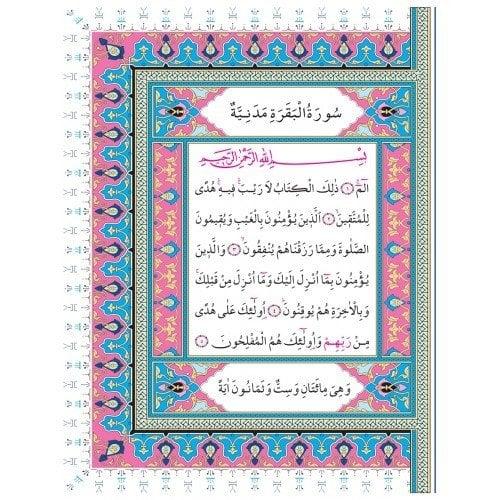 سُورَةُ الْبَقَرَةِ مَدَنِيَّةٌ
بِسْمِ اللهِ الرَّحْمٰنِ الرَّحِيمِ
الٓمٓ ﴿١﴾ ذٰلِكَ الْكِتَابُ لَا رَيْبَۛ فِيهِۛ هُدًى
لِلْمُتَّقِينَۙ ﴿٢﴾ اَلَّذِينَ يُؤْمِنُونَ بِالْغَيْبِ وَيُقِيمُونَ
الصَّلٰوةَ وَمِمَّا رَزَقْنَاهُمْ يُنْفِقُونَۙ ﴿٣﴾ وَالَّذِينَ
يُؤْمِنُونَ بِمَٓا اُنْزِلَ اِلَيْكَ وَمَٓا اُنْزِلَ مِنْ قَبْلِكَۚ
وَبِالْاٰخِرَةِ هُمْ يُوقِنُونَۜ ﴿٤﴾ اُو۬لٰٓئِكَ عَلٰى هُدًى
مِنْ رَبِّهِمْ وَاُو۬لٰٓئِكَ هُمُ الْمُفْلِحُونَ ﴿٥﴾
وَهِيَ مِائَتَانِ وَسِتٌّ وَثَمَانُونَ اٰيَةً